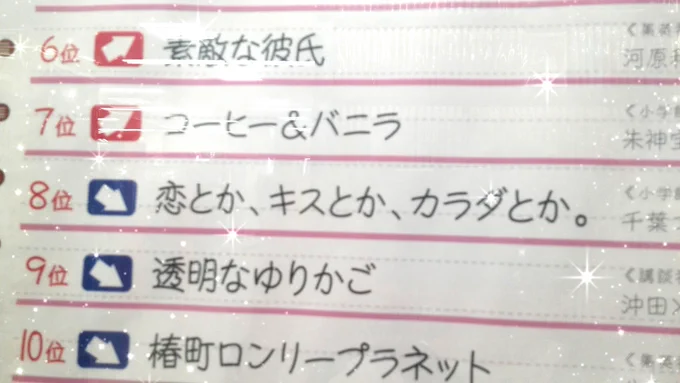 6位 素敵な彼氏
河原
7位 コーヒー&バニラ
〈小学館
朱神宝
8位 恋とか、キスとか、カラダとか。
〈小学館
千葉
9位 透明なゆりかご
〈講談社
沖田×
10位 椿町ロンリープラネット